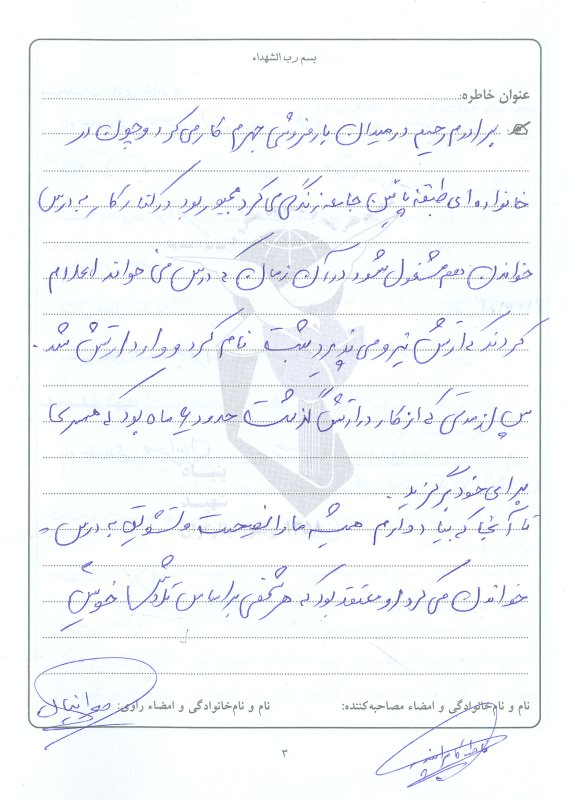 بسم رب الشهداء
عنوان خاطره:
برادرم رحیم در میدان بارفروشی جهرم کار می کرد و چون در
خانواده ای طبقه پائین جامعه زندگی می کرد مجبور بود در کنار کار به درس
خواندن هم مشغول شود در آن زمان که درس می خواند اعلام
کردند که ارتش نیرو می پذیرد ثبت نام کرد و وارد ارتش شد.
پس از مدتی که از کار در ارتش گذشت حدود ۶ ماه بود که همسری
برای خود برگزید.
تا آنجا که بیاد دارم همیشه ما را نصیحت و تشویق به درس
خواندن می کرد و معتقد بود که هر شخصی بر اساس تلاش خویش
بنیاد
شهید
نام و نام‌خانوادگی و امضاء مصاحبه‌کننده:
نام و نام‌خانوادگی و امضاء راوی:
۳